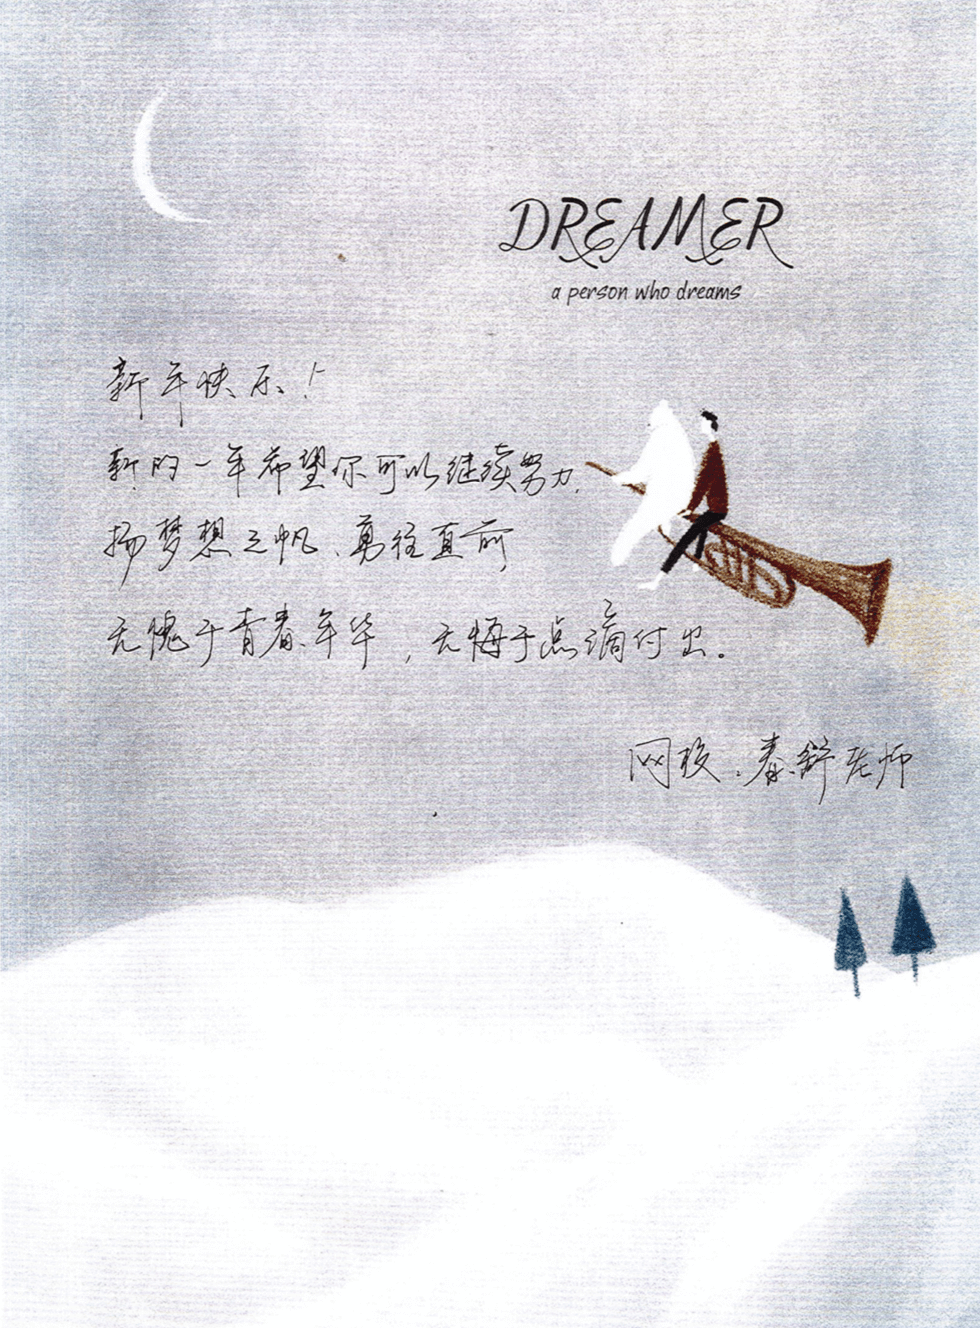 DREAMER
a person who dreams
新年快乐！
新的一年希望你可以继续努力，
扬梦想之帆、勇往直前
无愧于青春年华，无悔于点滴付出。
网校、秦舒老师